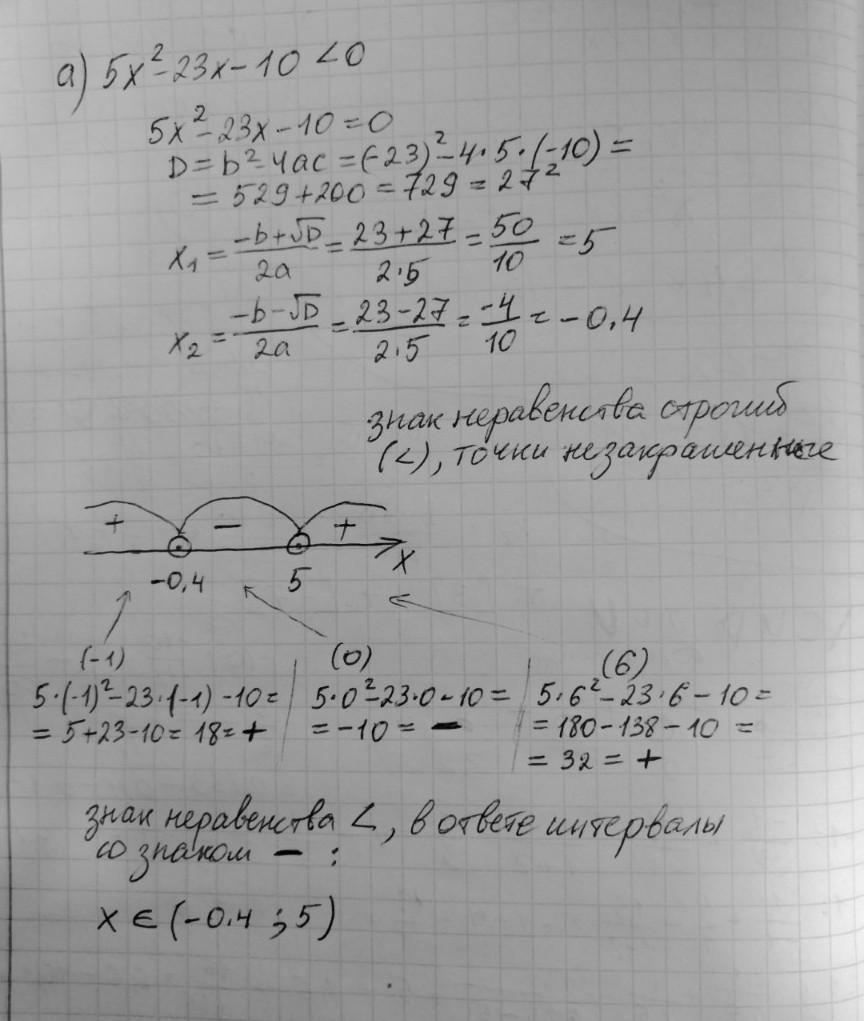 а) 5x²-23x-10<0
5x²-23x-10=0
D=b²-4ac=(-23)²-4·5·(-10)=
=529+200=729=27²
x₁=(-b+√D)/2a=(23+27)/2·5=50/10=5
x₂=(-b-√D)/2a=(23-27)/2·5=-4/10=-0,4
знак неравенства строгий
(<), точки незакрашенные
+ - +
-0,4 5 x
(-1) (0) (6)
5·(-1)²-23·(-1)-10= 5·0²-23·0-10= 5·6²-23·6-10=
=5+23-10=18=+ =-10=- =180-138-10=
=32=+
знак неравенства <, в ответе интервалы
со знаком - :
x∈(-0.4;5)